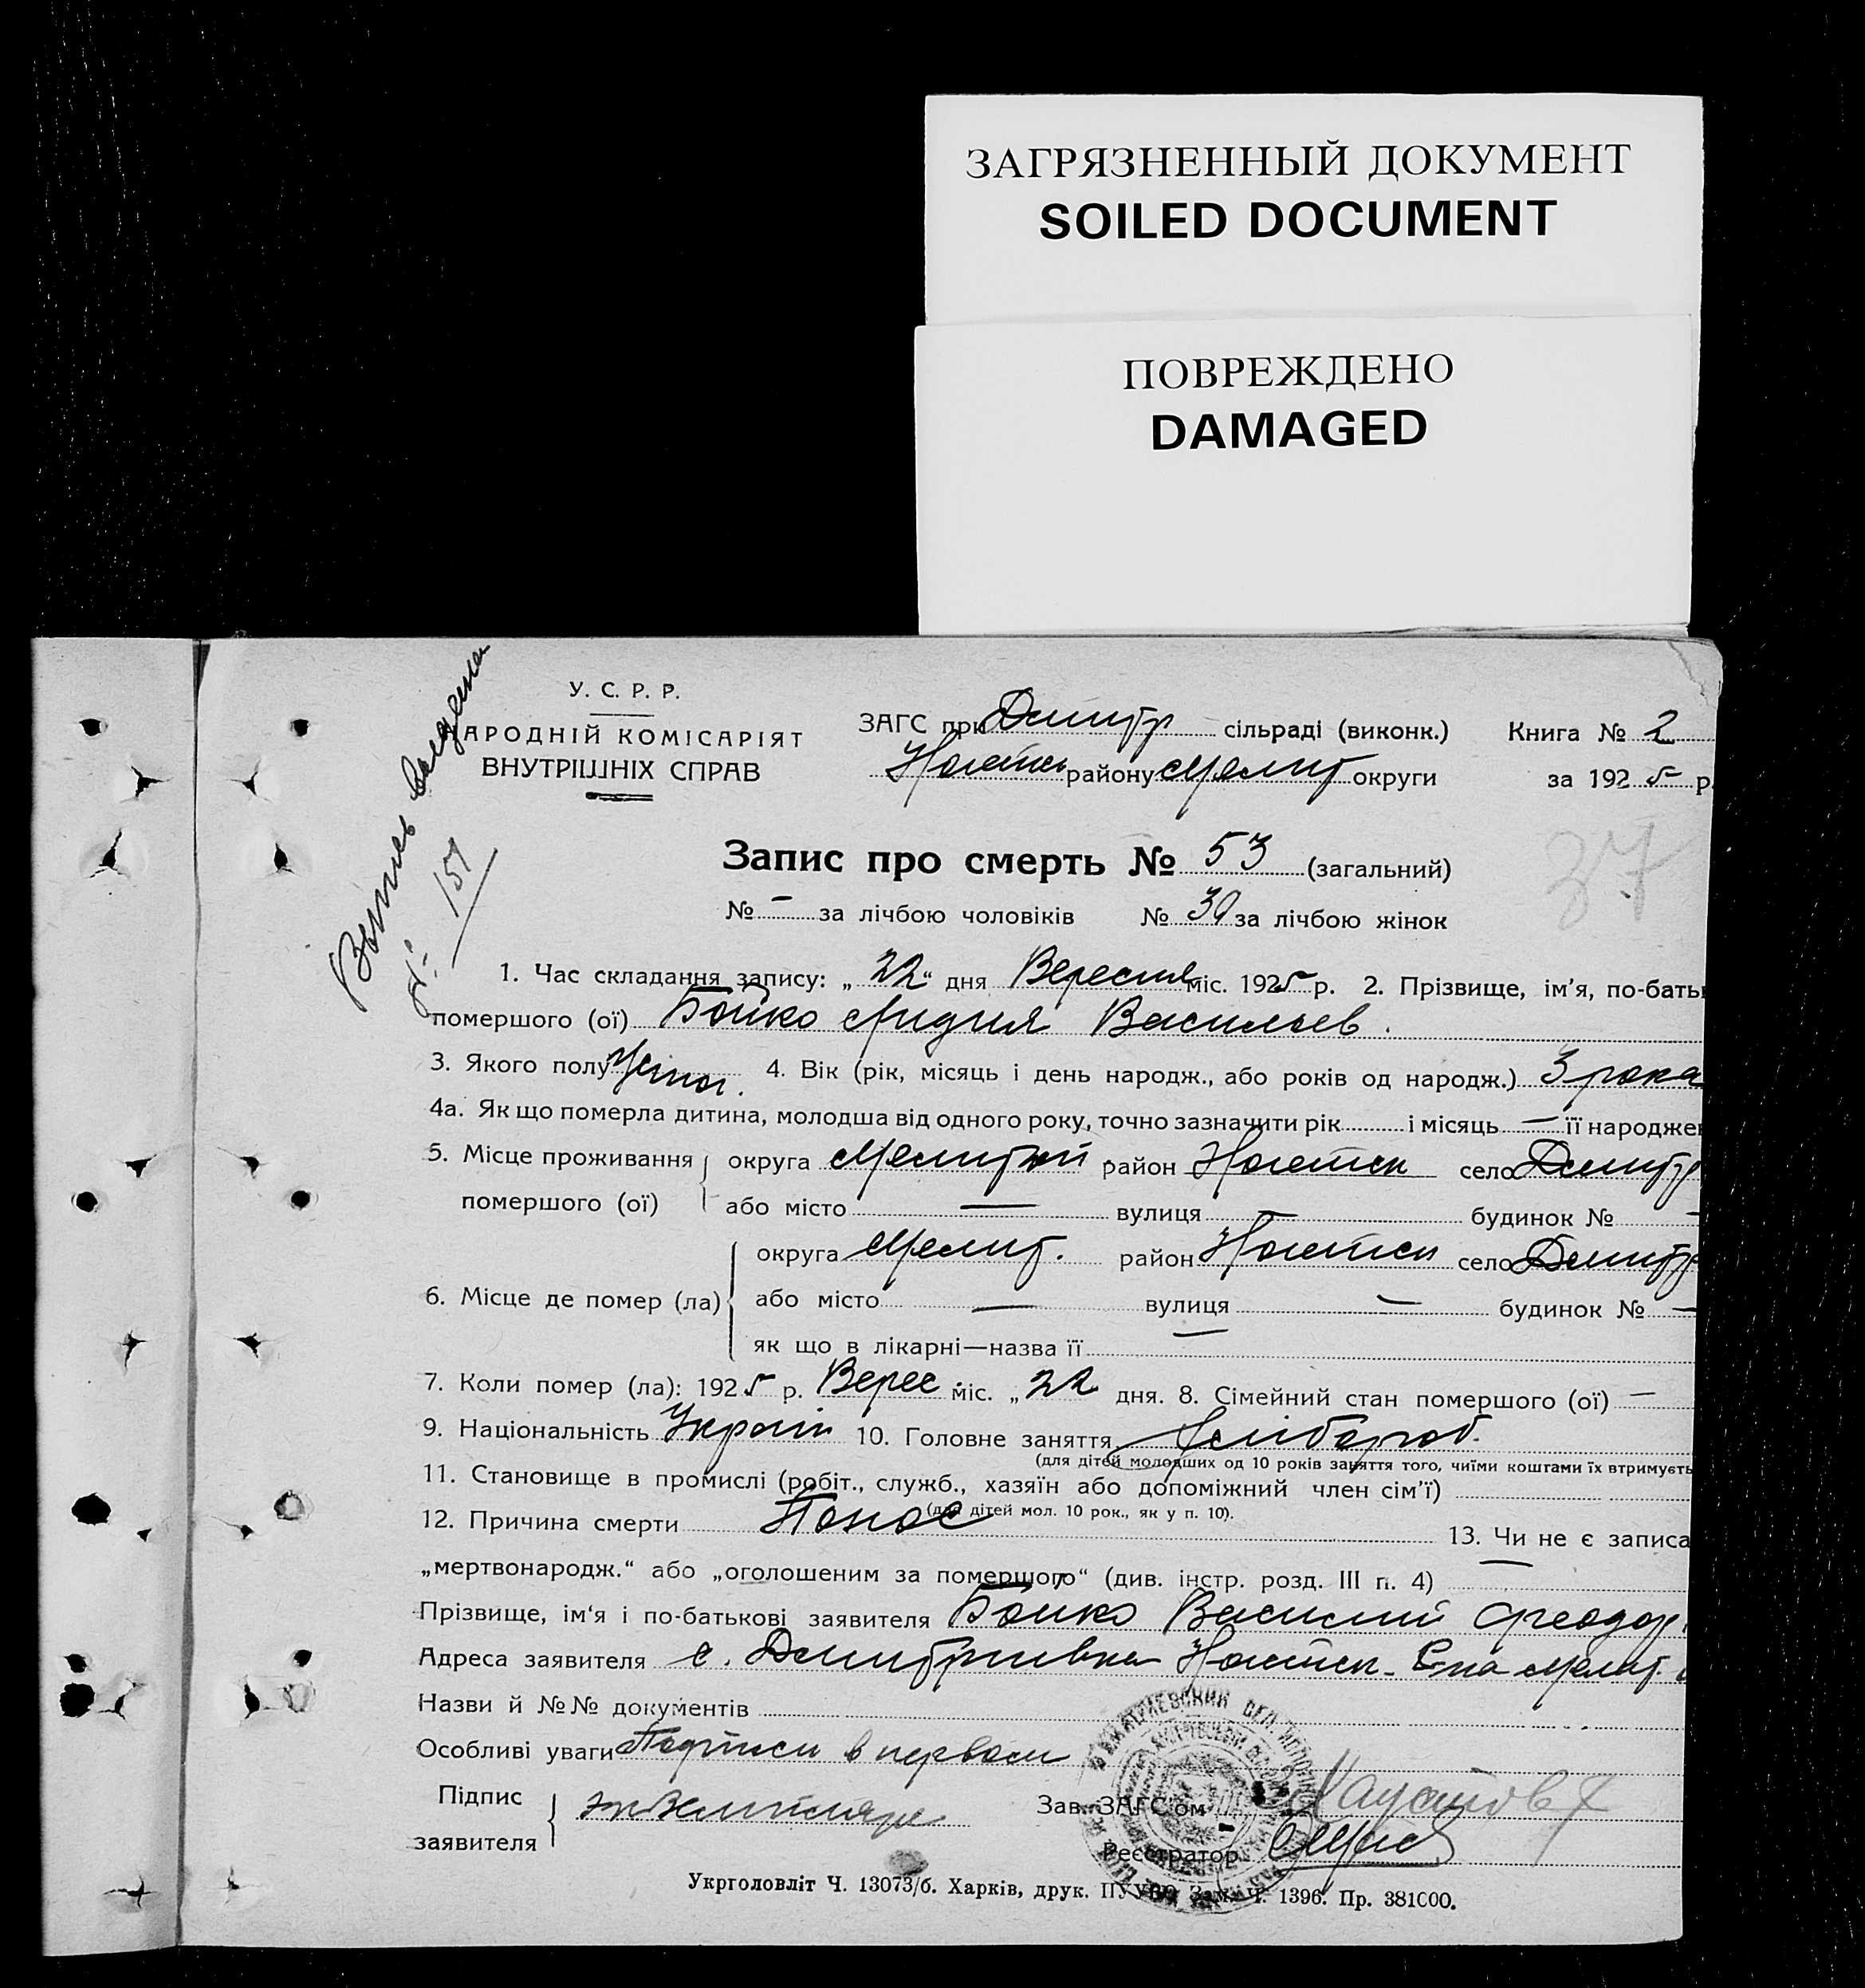 ЗАГРЯЗНЕННЫЙ ДОКУМЕНТ
SOILED DOCUMENT
ПОВРЕЖДЕНО
DAMAGED
У. С. Р. Р.
НАРОДНІЙ КОМІСАРІЯТ
ВНУТРІШНІХ СПРАВ
ЗАГС при Дмитр сільраді (виконк.) Книга № 2
району Мелит округи за 1925 р.
Запис про смерть № 53 (загальний)
37
151
№ - за лічбою чоловіків № 30 за лічбою жінок
1. Час складання запису: „22“ дня Вересня міс. 1925 р. 2. Прізвище, ім'я, по-батьк
помершого (ої) Бойко Лидия Васильев.
3. Якого полу Жіноч. 4. Вік (рік, місяць і день народж., або років од народж.) 3 рока
4а. Як що померла дитина, молодша від одного року, точно зазначити рік і місяць — її народжен
5. Місце проживання округа Мелитопіл район Ногайськ село Дмитр
помершого (ої) або місто — вулиця — будинок № —
округа Мелит. район Ногайськ село Дмитр
6. Місце де помер (ла) або місто — вулиця — будинок № —
як що в лікарні—назва її —
7. Коли помер (ла): 1925 р. Верес. міс. „22 дня. 8. Сімейний стан помершого (ої) —
9. Національність Україн 10. Головне заняття Хлібороб.
(для дітей молодших од 10 років заняття того, чиїми коштами їх втримуєть
11. Становище в промислі (робіт., служб., хазяїн або допоміжний член сім'ї)
(для дітей мол. 10 рок., як у п. 10).
12. Причина смерти Понос 13. Чи не є записа
„мертвонародж.“ або „оголошеним за помершого“ (див. інстр. розд. III п. 4) —
Прізвище, ім'я і по-батькові заявителя Бойко Василий Феодор
Адреса заявителя с. Дмитривка Мелит.
Назви й №№ документів
Особливі уваги Подписи в первом
Підпис заявителя экземпляре Зав. ЗАГС'ом
Реєстратор
Укрголовліт Ч. 13073/б. Харків, друк. ПУУВО Зам. Ч. 1396. Пр. 381000.